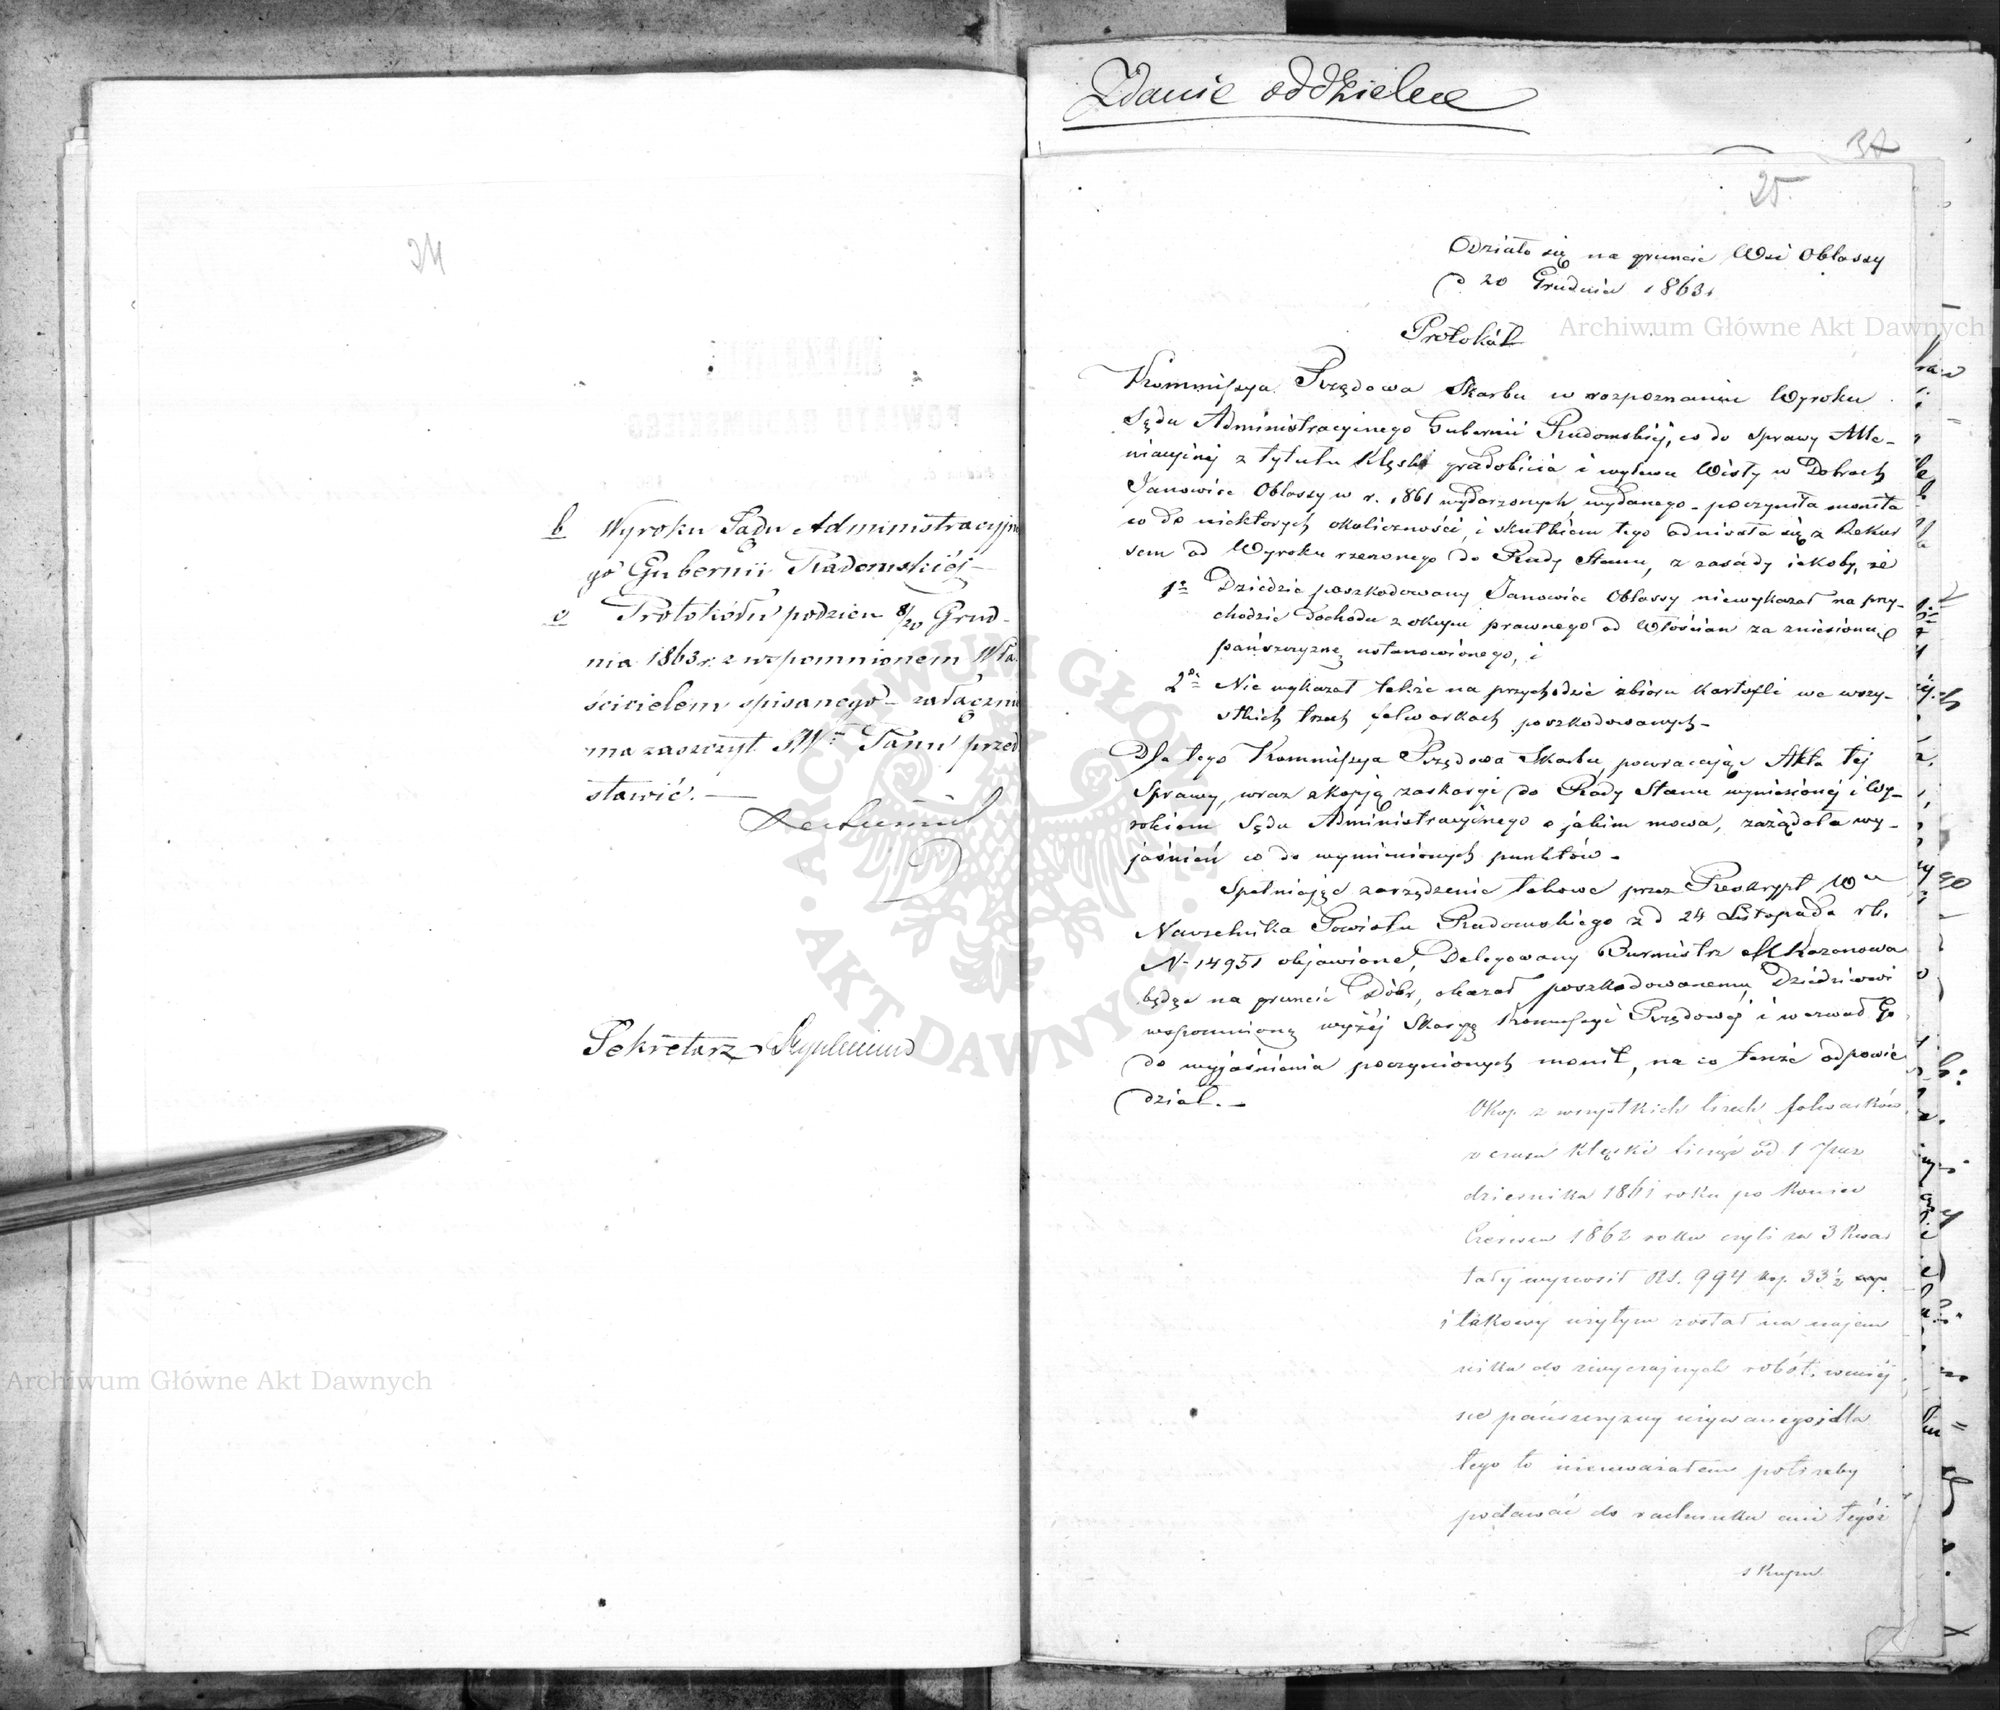 24
b Wyroku Sądu Administracyjne
go Gubernii Radomskiéj
c Protokółu pod dniem 8/20 Grud-
nia 1863 r. z wspomnionem Wła-
ścicielem spisanego – załączni
ma zaszczyt JWu Panu przed
stawić. —
Sekretarz
Zdanie oddzielne
37
25
Działo się na gruncie Wsi Oblassy
d 20 Grudnia 1863 r
Protokół
Kommissya Rządowa Skarbu w rozpoznaniu Wyroku
Sądu Administracyjnego Gubernii Radomskiéj, co do Sprawy Alle-
wiacyjnéj z tytułu Klęski gradobicia i wylewu Wisły w Dobrach
Janowice Oblassy w r. 1861 wydarzonych, wydanego – poczyniła monita
co do niektórych okoliczności, i skutkiem tego odniosła się z Rekur
sem od Wyroku rzeczonego do Rady Stanu, z zasady jakoby, że
1o Dziedzic poszkodowany Janowice Oblassy niewykazał na przy-
chodzie Dochodu z okupu prawnego od Włościan za zniesioną
pańszczyznę ustanowionego, i
2o Nie wykazał także na przychodzie zbioru kartofli we wszy-
stkich trzech folwarkach poszkodowanych –
Dla tego Kommissya Rządowa Skarbu, powracając Akta téj
Sprawy, wraz z kopją zaskargi do Rady Stanu wyniesionéj i Wy-
rokiem Sądu Administracyjnego o jakim mowa, zażądała wy-
jaśnień co do wymienionych punktów –
Spełniając zarządzenie takowe przez Reskrypt Wo
Naczelnika Powiatu Radomskiego z d 24 Listopada rb.
N 14951 objawione, Delegowany Burmistrz M. Kazanowa
będąc na gruncie Dóbr, okazał poszkodowanemu Dziedzicowi
wspomnioną wyżéj Skargę Kommissyi Rządowéj i wezwał Go
do wyjaśnienia poczynionych monit, na co tenże odpowie
dział. –
Okup z wszystkich trzech folwarków
w czasie klęski licząc od 1 Paz
dziernika 1861 roku po koniec
Czerwca 1862 roku czyli za 3 Kwar
tały wynosił RS. 994 kop. 33 1/2
i takowy użytym został na najem
nika do zwyczajnych robót, w miej
sce pańszczyzny używanego, dla
tego to nieuważałem potrzeby
podawać do rachunku ani tegóż
skupu
Archiwum Główne Akt Dawnych
Archiwum Główne Akt Dawnych
ARCHIWUM GŁÓWNE · AKT DAWNYCH ·